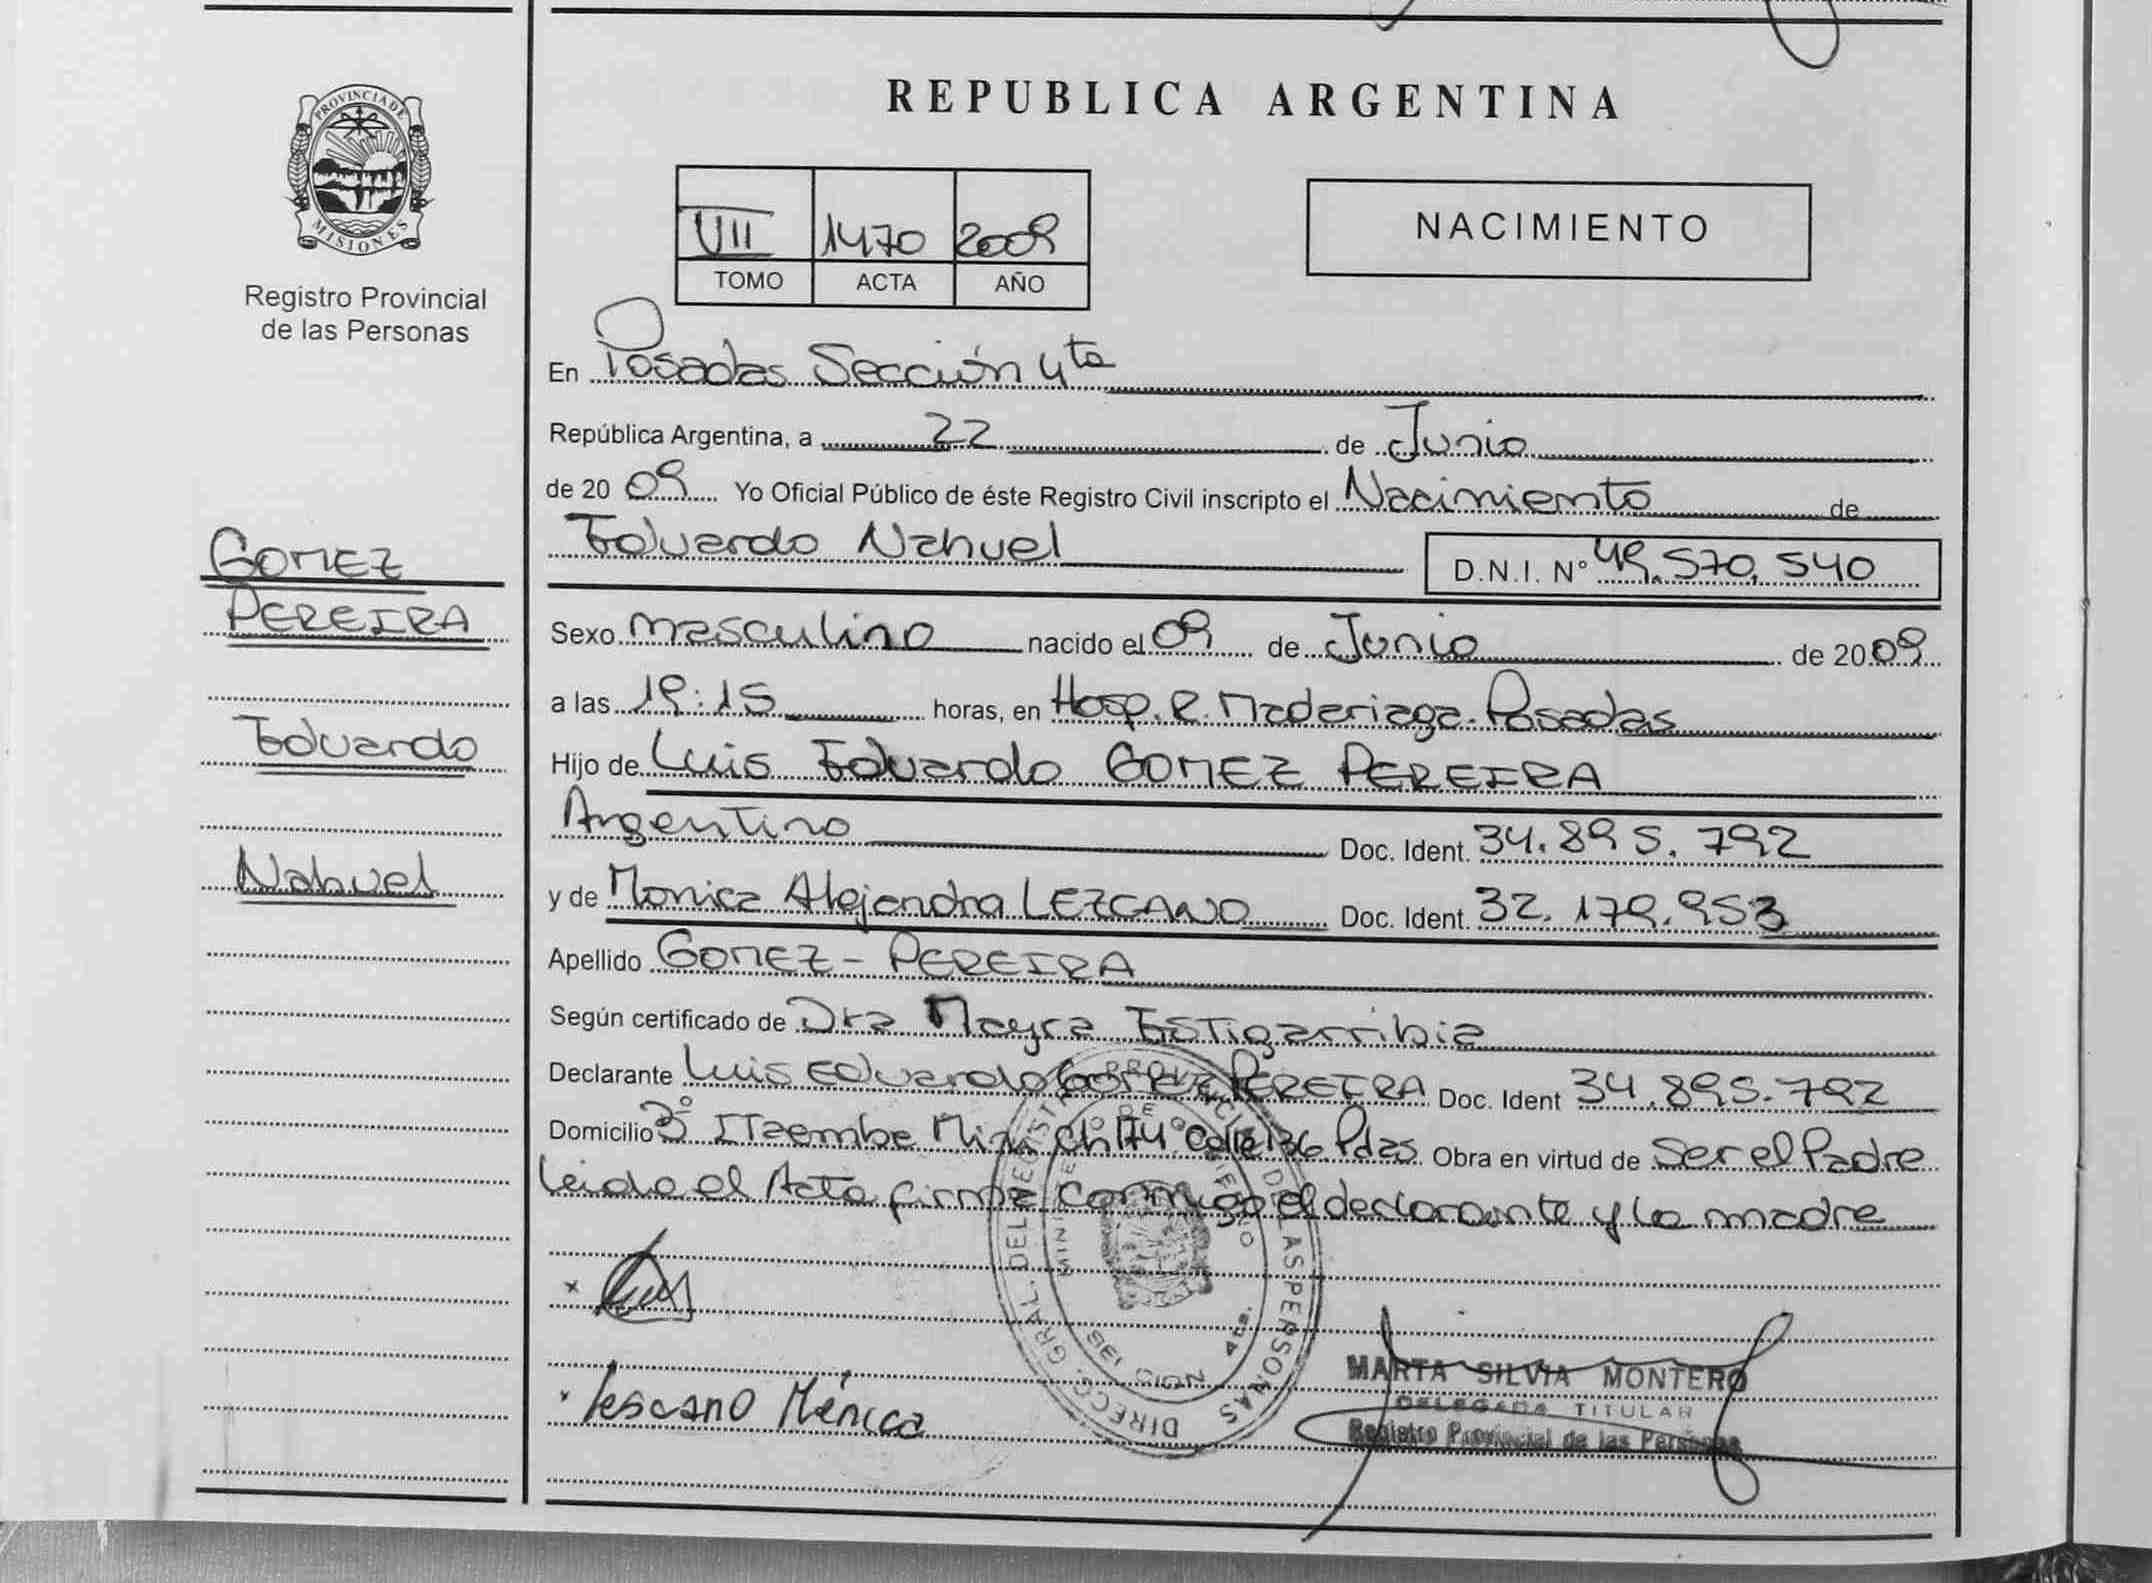 PROVINCIA DE
MISIONES
Registro Provincial
de las Personas
GOMEZ
PEREIRA
Eduardo
Nahuel
REPUBLICA ARGENTINA
VII 1470 2009
TOMO ACTA AÑO
NACIMIENTO
En Posadas Sección 4ta
República Argentina, a 22 de Junio
de 2009 Yo Oficial Público de éste Registro Civil inscripto el Nacimiento de
Eduardo Nahuel D.N.I. N° 49.570.540
Sexo Masculino nacido el 09 de Junio de 2009
a las 19:15 horas, en Hosp. R. Madariaga. Posadas
Hijo de Luis Eduardo GOMEZ PEREIRA
Argentino Doc. Ident. 34.895.792
y de Monica Alejandra LEZCANO Doc. Ident. 32.179.953
Apellido GOMEZ - PEREIRA
Según certificado de Dra Mayra Estigarribia
Declarante Luis Eduardo Gomez PEREIRA Doc. Ident 34.895.792
Domicilio B° Itaembe Mini Ch 174° Calle 136 Pdas Obra en virtud de Ser el Padre
Leida el Acta firma conmigo el declarante y la madre
x
x Lescano Mónica
DIRECC. GRAL. DEL REGISTRO PROVINCIAL DE LAS PERSONAS
MARTA SILVIA MONTERO
DELEGADA TITULAR
Registro Provincial de las Personas